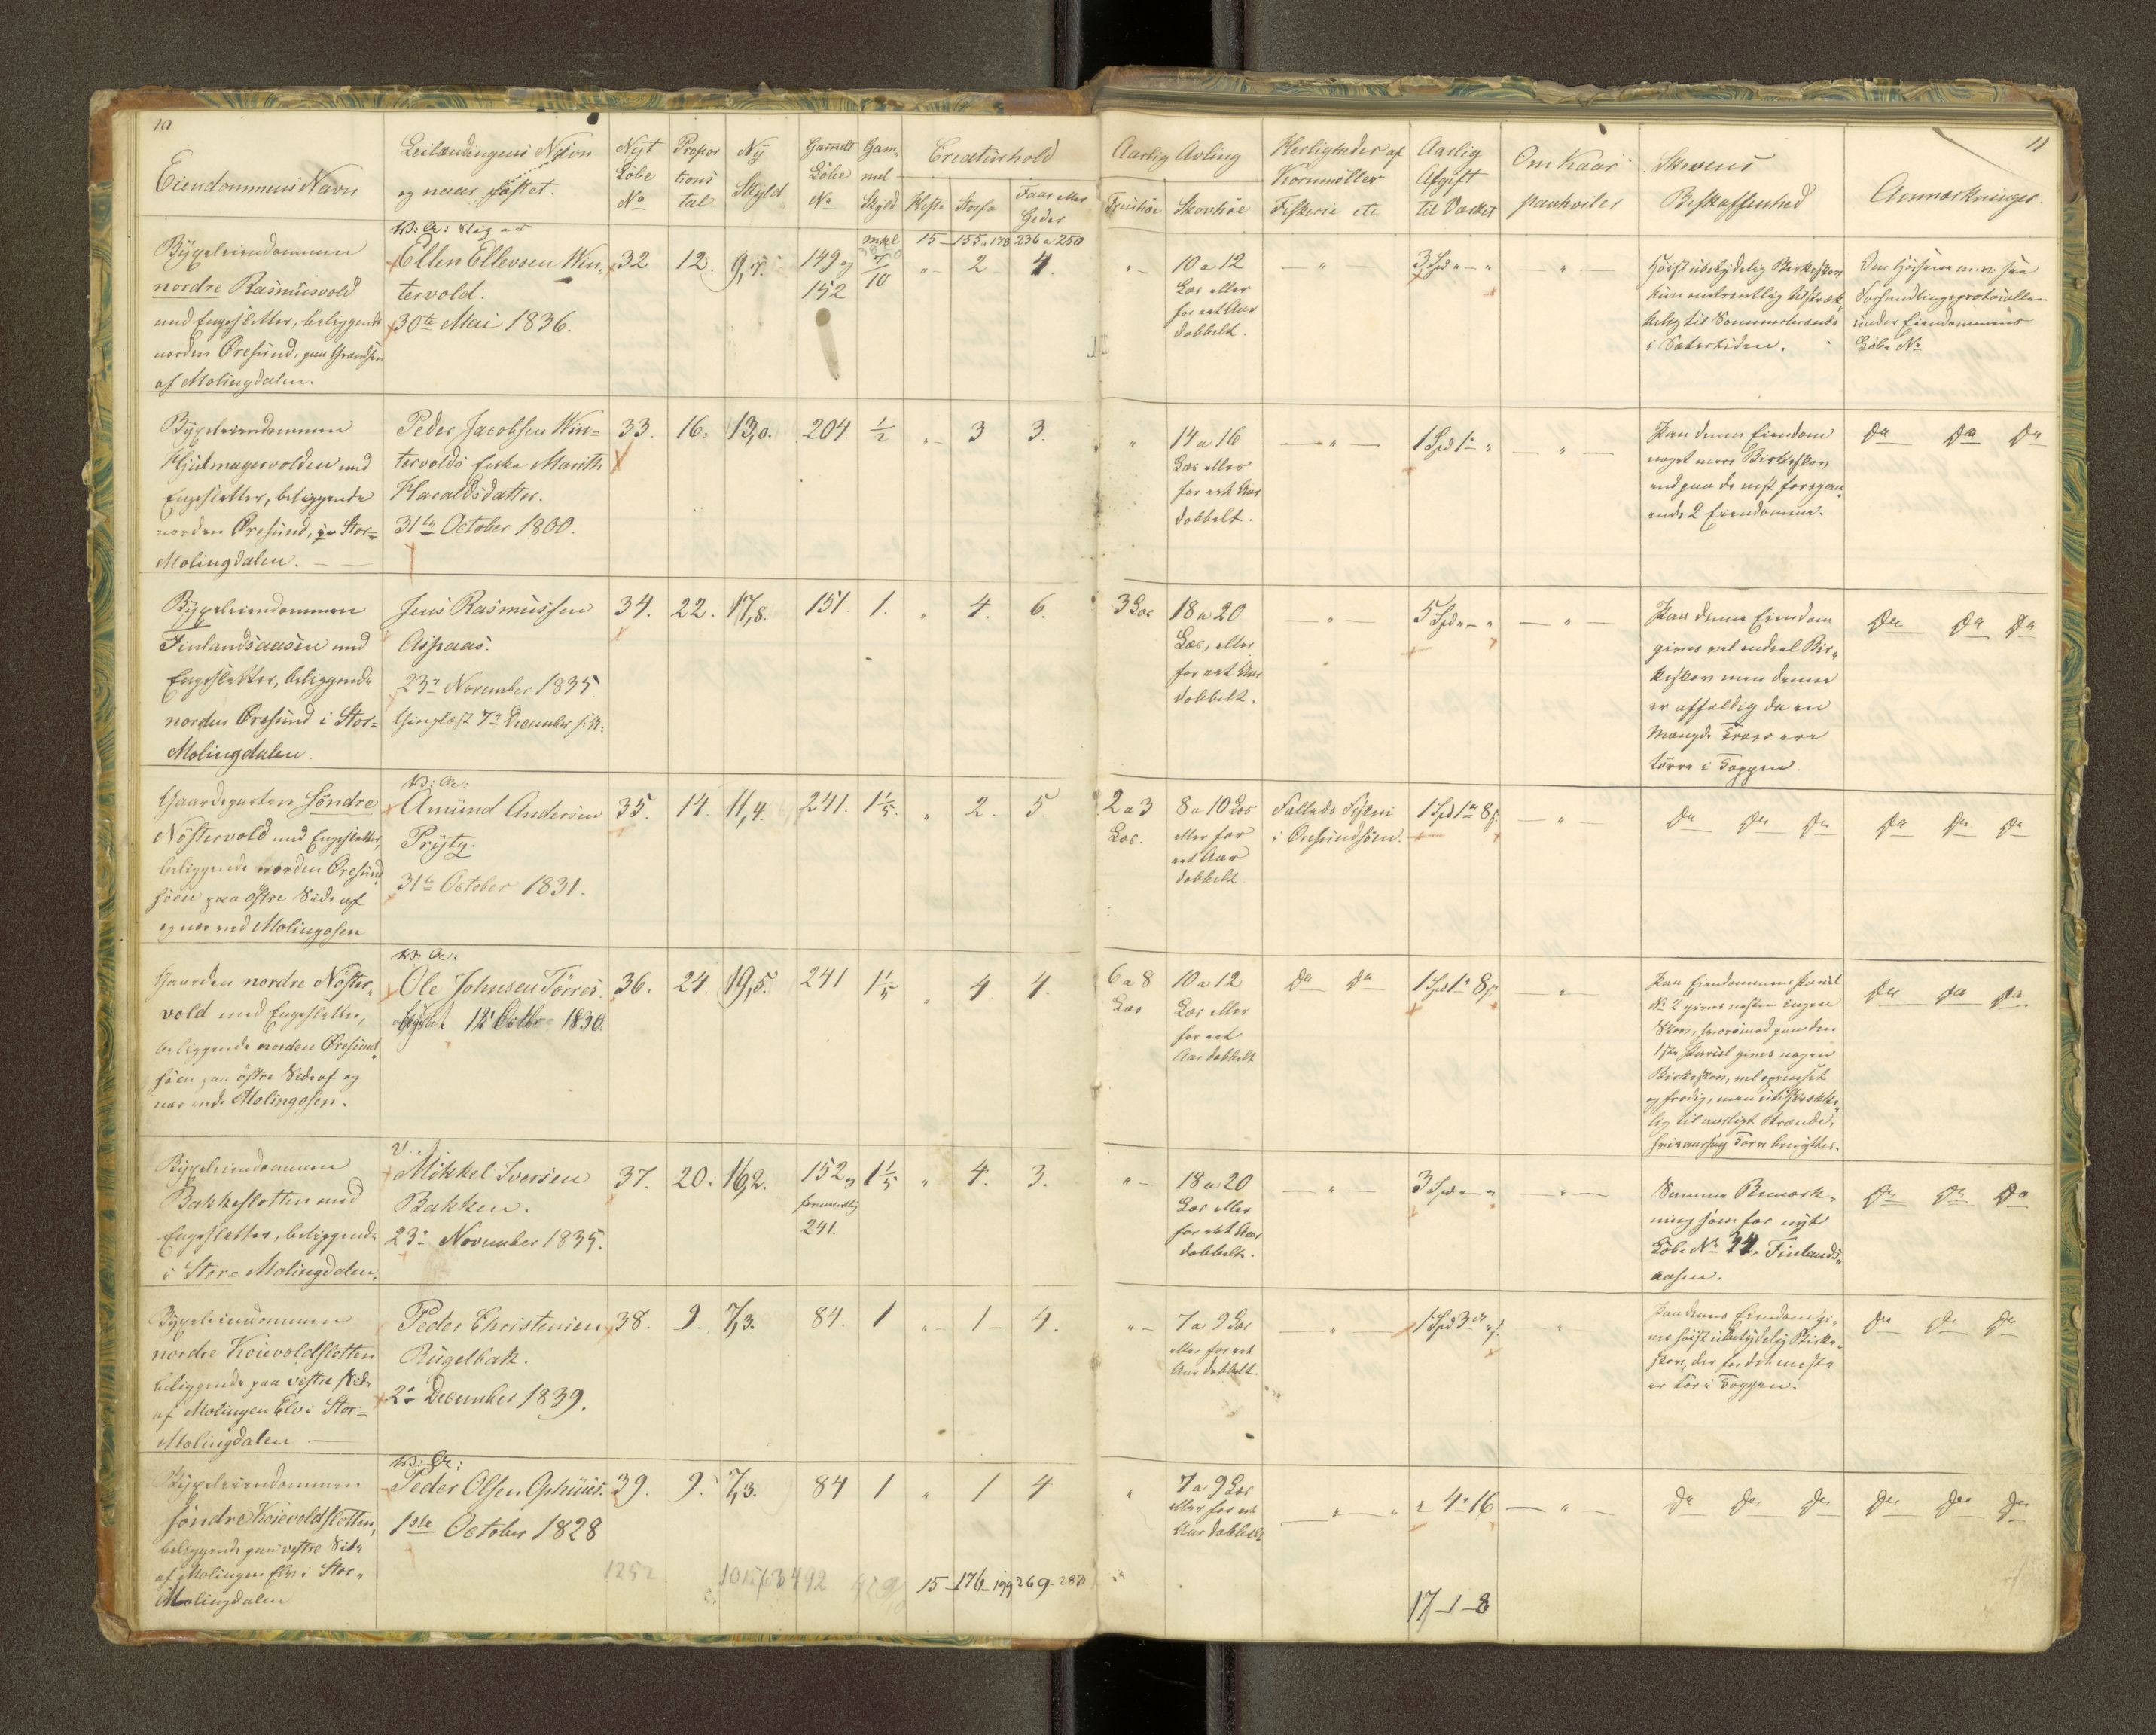 10
Eiendommens Navn
Leilændingens Navn
og naar fæstet.
Nyt
Löbe
No
Propor
tions
tal
Ny
Skyld
Gammelt
Löbe
No
Gam-
mel
Skyld
Creaturhold
Heste Storfæ Faar eller
Geder
mkl 15 - 155 a 178 236 a 250
Bygseleiendommen
nordre Rasmusvold
med Engesletter, beliggende
norden Öresund, paa Grændsen
af Molingdalen.
Ellen Ellevsen Win-
tervold.
30te Mai 1836.
32 12. 9,7. 149 og 7/10 " 2 4.
152
Bygseleiendommen
Hjulmagervolden med
Engesletter, beliggende
norden Öresund, i Stor=
Molingdalen.
Peder Jacobsen Win=
tervolds Enke Marith
Haraldsdatter.
31te October 1800.
33. 16. 13,0. 204. 1/2 " 3 3.
Bygseleiendommen
Finlandsaasen med
Engesletter, beliggende
norden Öresund i Stor=
Molingdalen.
Jens Rasmussen
Aspaas.
23de November 1835.
thinglæst 7de December s: A:
34. 22. 17,8. 151. 1. " 4. 6.
Gaardeparten söndre
Nöstervold med Engesletter,
beliggende norden Öresund
söen paa östre Side af
og nær ved Molingosen
Amund Andersen
Pryty.
31te October 1831.
35. 14. 11,4. 241. 1 1/5. " 2. 5.
Gaarden nordre Nöster-
vold med Engesletter,
beliggende norden Öresund
söen paa östre Side af og
nær ved Molingosen.
Ole Johnsen Törres.
12te Octbr 1830.
36. 24. 19,5. 241 1 1/5 " 4 4.
Bygseleiendommen
Bakkesletten med
Engesletter, beliggende
i Stor= Molingdalen.
Mikkel Iversen
Bakken.
23de November 1835.
37. 20. 16,2. 152 og 1 1/5 " 4. 3.
241.
Bygseleiendommen
nordre Koievoldsletten
beliggende paa vestre Side
af Molingen Elv i Stor=
Molingdalen
Peder Christensen
Rugelbak.
2de December 1839.
38. 9. 7,3. 84. 1 " 1 4.
Bygseleiendommen
söndre Koievoldsletten,
beliggende paa vestre Side
af Molingen Elv i Stor-
Molingdalen
Peder Olsen Ophuus.
1ste October 1828
39. 9. 7,3. 84 1 " 1 4
1252
15 - 176 - 199 269 - 283
11
Aarlig Avling
Skovhöe
Herligheder af
Kornmöller
Fiskerie etc
Aarlig
Afgift
til Værket
Om Kaar
paahviler
Skovens
Beskaffenhed
Anmærkninger.
" 10 a 12
Læs eller
for eet Aar
dobbelt.
3 Spd " - "
Höist ubetydelig Birkeskov
kun omtrentlig tilstræk-
kelig til Sommerbrænde
i Sætertiden.
Om Höisene m.v. see
Forhandlingsprotocollen
under Eiendommens
Löbe No
" 14 a 16
Læs eller
for eet Aar
dobbelt.
1 Spd 1 "
Paa denne Eiendom
noget mere Birkeskov
end paa de nest foregaa-
ende 2 Eiendomme.
Do Do Do
3 Læs 18 a 20
Læs, eller
for eet Aar
dobbelt.
5 Spd " - "
Paa denne Eiendom
gives vel endeel Bir-
keskov men denne
er affældig da en
Mængde Træer ere
törre i Toppen.
Do Do Do
2 a 3
Læs.
8 a 10 Læs
eller for
eet Aar
dobbelt
Fælleds Fiskeri
i Öresundsöen.
1 Spd 1 8 s.
Do Do Do
Do Do Do
6 a 8
Læs
10 a 12
Læs eller
for eet
Aar dobbelt
Do Do
1 Spd 1 8 s.
Paa Eiendommens Parcel
No 2 gives næsten ingen
Skov, hvorimod paa den
1ste Parcel gives nogen
Birkeskov, vel opvoxet
og frodig, men utilstrække-
lig til aarligt Brænde,
Do Do Do
" 18 a 20
Læs eller
for eet Aar
dobbelt.
3 Spd " "
Samme Bemærk-
ning som for nyt
Löbe No 34, Finlands-
aasen.
Do Do Do
" 7 a 9 Læs
eller for eet
Aar dobbelt.
1 Spd 3
Paa denne Eiendom gi-
ves höist ubetydelig Birke-
skov, der for det meste
er tör i Toppen.
Do Do Do
" 7 a 9 Læs
eller for eet
Aar dobbelt
" 4 - 16
Do Do Do
Do Do Do
17 - 1 - 8